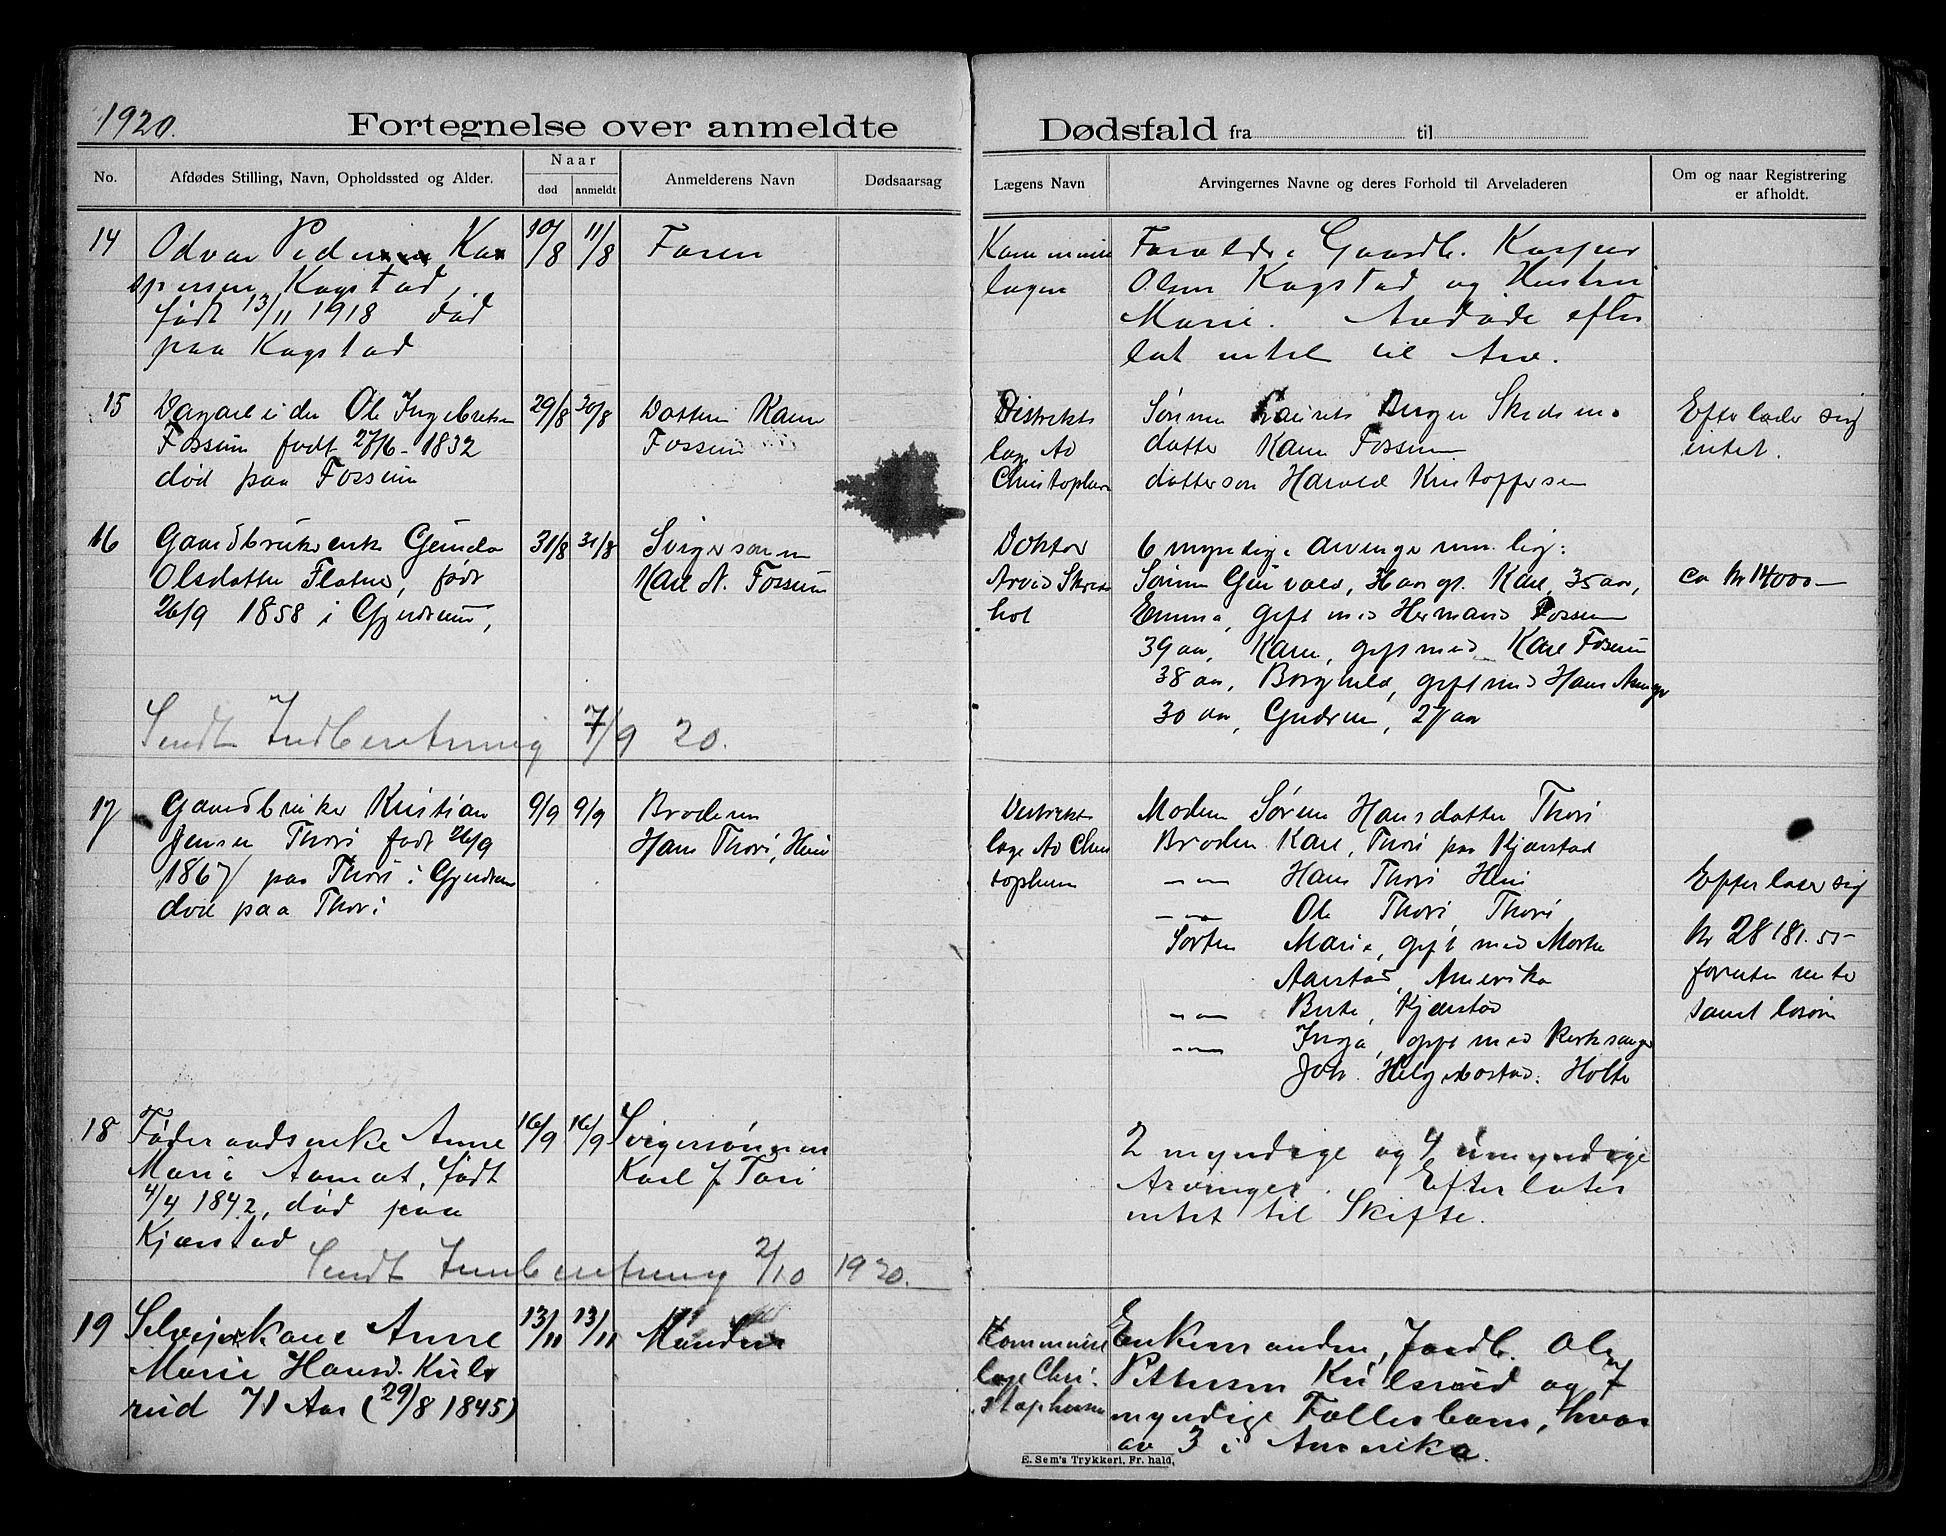 1920.
Fortegnelse over anmeldte Dødsfald fra til
No.
Afdødes Stilling, Navn, Opholdssted og Alder.
Naar
død
anmeldt
Anmelderens Navn
Dødsaarsag
Lægens Navn
Arvingernes Navne og deres Forhold til Arveladeren
Om og naar Registrering
er afholdt.
14
Odvar Ka
spersen Kogstad,
født 13/11 1918 død
paa Kogstad
10/8
11/8
Faren
Kommune
lægen
Forældre Gaardb. Kasper
Olsen Kogstad og Hustru
Marie. Avdøde efter
lot intet til Arv.
15
Ole Ingebretsen
Fossum født 27/6 - 1832
død paa Fossum
29/8
30/8
Datteren Karen
Fossum
Distrikts
læge Av
Christophersen
Sønnen Berger Skedsmo
datter Karen Fossum
dattersøn Harald Kristoffersen
Efterlader sig
intet.
16
Gaardbrukerenke Gunda
Olsdatter Flatner, født
26/9 1858 i Gjerdrum,
31/8
31/8
Svigersønnen
Karl A. Fossum
Doktor
Arvid Skreds
hol
6 myndige arvinger nml.:
Sønnen Gunvald, Karl, 35 aar,
Emma, gift med Herman Fossum
39 aar, Karen, gift med Karl Fossum
38 aar, Borghild, gift med Hans
30 aar, Gudrun, 27 aar
ca Kr 14000 —
Sendt Indberetning 7/9 20.
17
Gaardbruker Kristian
Jensen Thori født 26/9
1867 paa Thori i Gjerdrum
død paa Thori
9/9
9/9
Broderen
Hans Thori, Heni
Distrikts
læge Av Chris
tophersen
Moderen Søren Hansdatter Thori
Broderen Karl, Thori paa Kjærstad
— „ — Hans Thori Heni
— „ — Ole Thori Thori
Søsteren Marie, gift med Morten
Aarstad, Amerika
— „ — Berte, Kjærstad
— „ — Inga, gift med Kirksanger
Joh. Helgebostad. Holte
Efterlater sig
Kr 28181.55 -
foruten rente
samt løsøre
18
Føderaadsenke Anne
Marie Aamot, født
4/4 1842, død paa
Kjærstad
16/9
16/9
Svigersønnen
Karl J Tori
2 myndige og 4 umyndige
Arvinger. Efterlater
intet til Skifte.
Sendt Innberetning 2/10 1920.
19
Selveierkone Anne
Marie Hansd. Kuls
rud 71 Aar (29/8 1845)
13/11
13/11
Manden
Kommune
læge Chri
stophersen
Enkemanden, Jordb. Ole
Pettersen Kulsrud og 7
myndige Fællesbarn, hvor
av 3 i Amerika.
E. Sem's Trykkeri, Fr.hald,